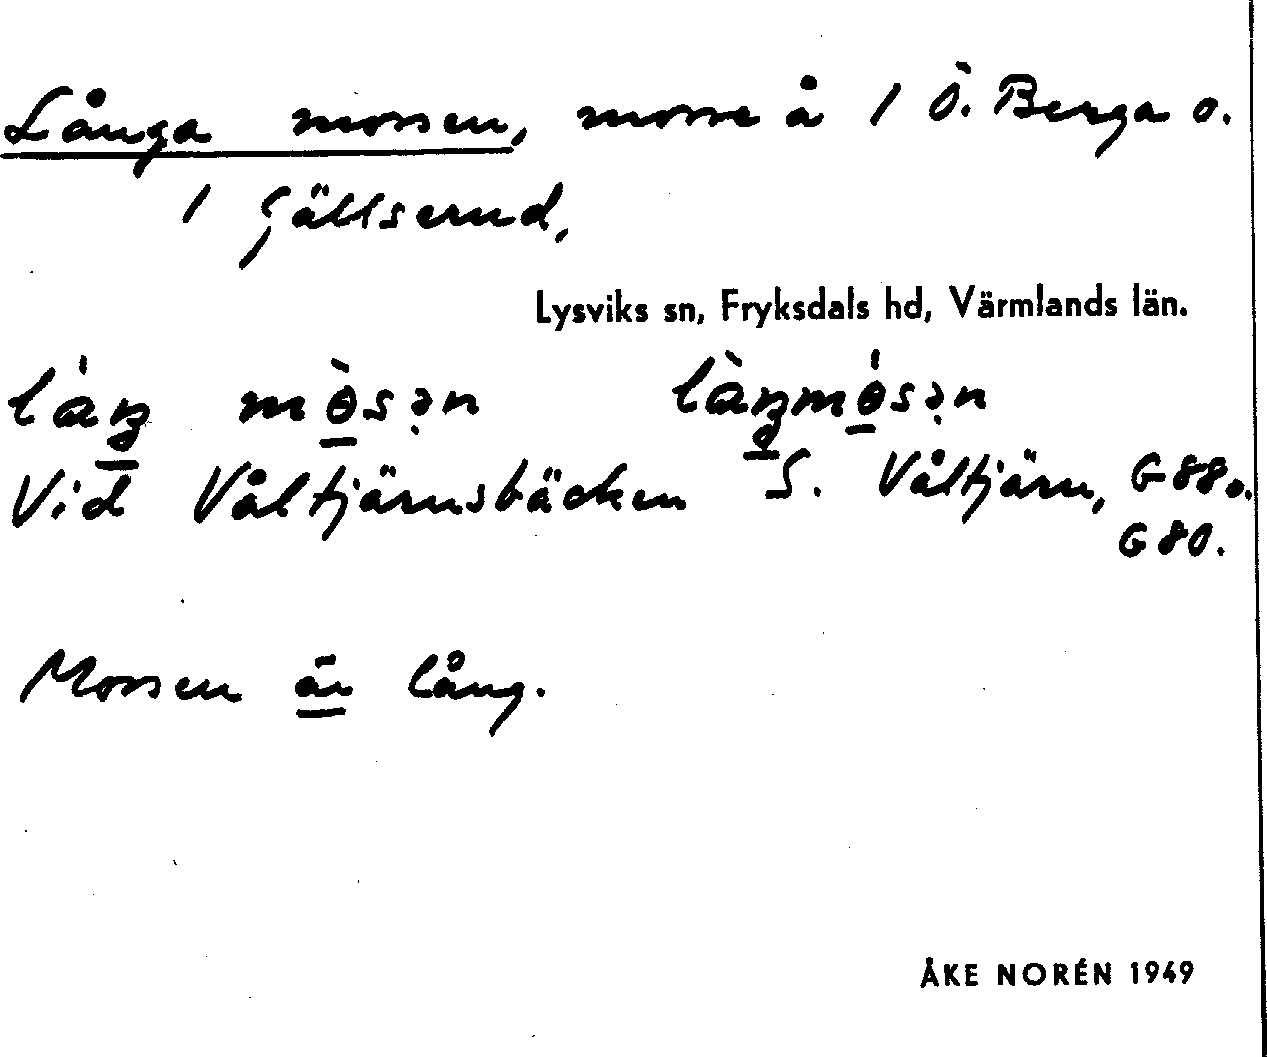 Långa mossen, mosse å 1 Ö. Berga o.
1 Gällserud,
Lysviks sn, Fryksdals hd, Värmlands län.
Vid Våltjärnsbäcken S. Våltjärn, G 88 o.
G 80.
Mossen är lång.
ÅKE NORÉN 1949